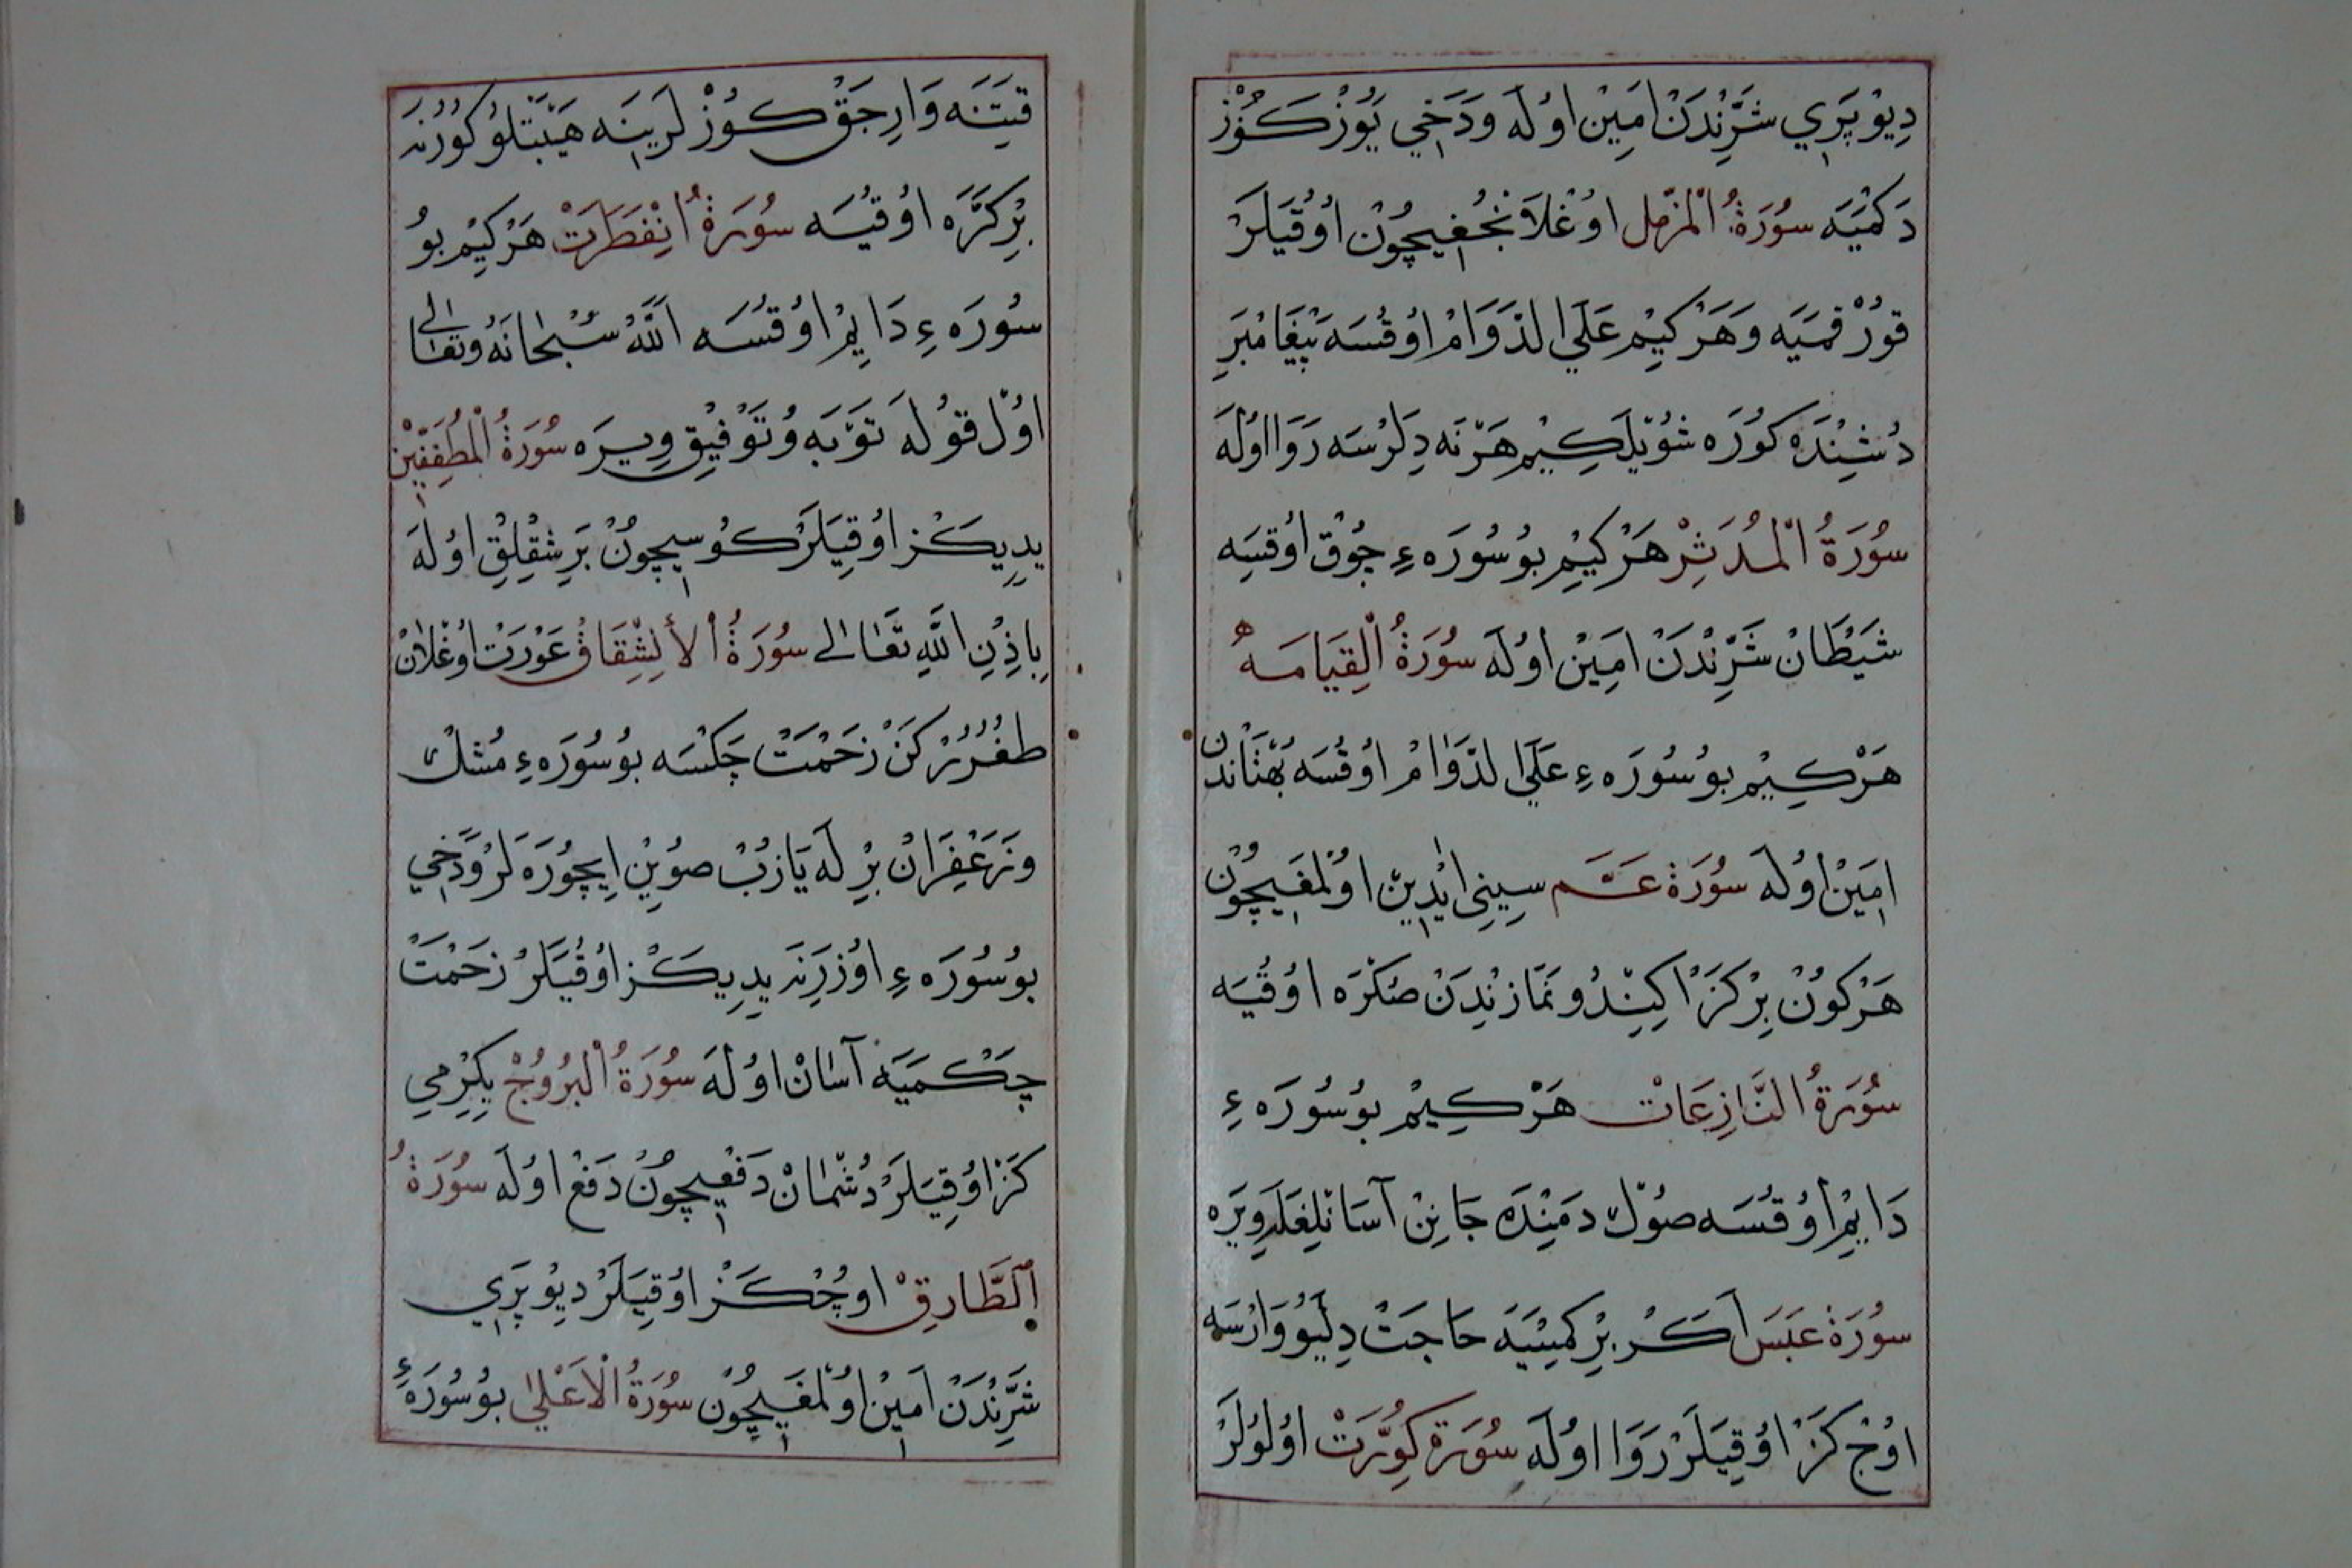 دِيوْ پَرِي شَرِّنْدَنْ اَمِينْ اوُلَه وَدَخِي يَوُزْ كَوُزْ
دَكْمَيَه سُورَةُ الْمُزَّمِّل اوُغْلَانْجُغِيچُونْ اوُقُيَلَرْ
قوُرْقمَيَه وَهَرْ كِيْم عَلَي الدَّوَامْ اوُقُسَه پَيْغَامْبَرِ
دُشِنْدَه كوُرَه شوُيْلَكِيْم هَرْ نَه دِلَرْسَه رَوَا اوُلَه
سُورَةُ الْمُدَثِرْ هَرْ كِيْم بوُ سُورَه ءِ چوُقْ اوُقُسَه
شَيْطَانْ شَرِّنْدَنْ اَمِينْ اوُلَه سُورَةُ الْقِيَامَه
هَرْ كِيْم بوُ سُورَه ءِ عَلَي الدَّوَامْ اوُقُسَه بُهْتَانْدَنْ
اَمِينْ اوُلَه سُورَة عَمَّ سِينِى اَيْدِينْ اوُلْمَغِيچُونْ
هَرْ كوُنْ بِرْ كَزْ اِكِنْدُو نَمَازِنْدَنْ صُكْرَه اوُقُيَه
سُورَةُ النَّازِعَاتْ هَرْ كِيْم بوُ سُورَه ءِ
دَايِمْ اوُقُسَه صوُلْ دَمِنْدَه جَانِنْ آسَانْلِغْلَه وِيَرَه
سُورَة عَبَسَ اَكَرْ بِرْ كِمْسِيَه حَاجَتْ دِلَيو وَارْسَه
اوُچْ كَزْ اوُقِيَلَرْ رَوَا اوُلَه سُورَة كُوِّرَتْ اوُلوُلَرْ
قتِنَه وَارِجَقْ كوُزْلَرِينَه هَيْبَتْلوُ كوُرُنَه
بِرْ كَرَّه اوُقيُسَه سُورَةُ انْفَطَرَتْ هَرْ كِيْم بوُ
سُورَه ءِ دَايِمْ اوُقُسَه اَللّٰهُ سُبْحَانَهُ وَتَعَالَى
اوُلْ قوُلَه تَوْبَه وُ تَوْفِيْق وِيرَه سُورَةُ الْمُطَفِّفِينْ
يدِيكَزْ اوُقِيَلَرْ كوُسِيچُونْ بَرِشْقِلِقْ اوُلَه
بِاِذْنِ اللّٰهِ تَعَالى سُورَةُ الْاِنْشِقَاقْ عَوْرَتْ اوُغْلَانْ
طغُرُرْكَنْ زَحْمَتْ چَكْسَه بوُ سُورَه ءِ مُشْكْ
وزَعْفِرَانْ بِرْلَه يَازُبْ صوُيِنْ اِيچُورَه لَرْ وَدَخِي
بوُ سُورَه ءِ اوُزرِنَه يدِيكَزْ اوُقُيَلَرْ زَحْمَتْ
چَكْمَيَه آسَانْ اوُلَه سُورَةُ الْبُرُوُجْ يكِرْمِي
كَزْ اوُقِيَلَرْ دُشْمَانْ دَفْعِيچُونْ دَفْعْ اوُلَه سُورَةُ
اَلطَّارِقْ اوُچْكَزْ اوُقِيَلَرْ دِيوْ پَرِي
شَرِّنْدَنْ اَمِينْ اوُلْمَغِيچُونْ سُورَةُ الْاَعْلَي بوُ سُورَه ءِ